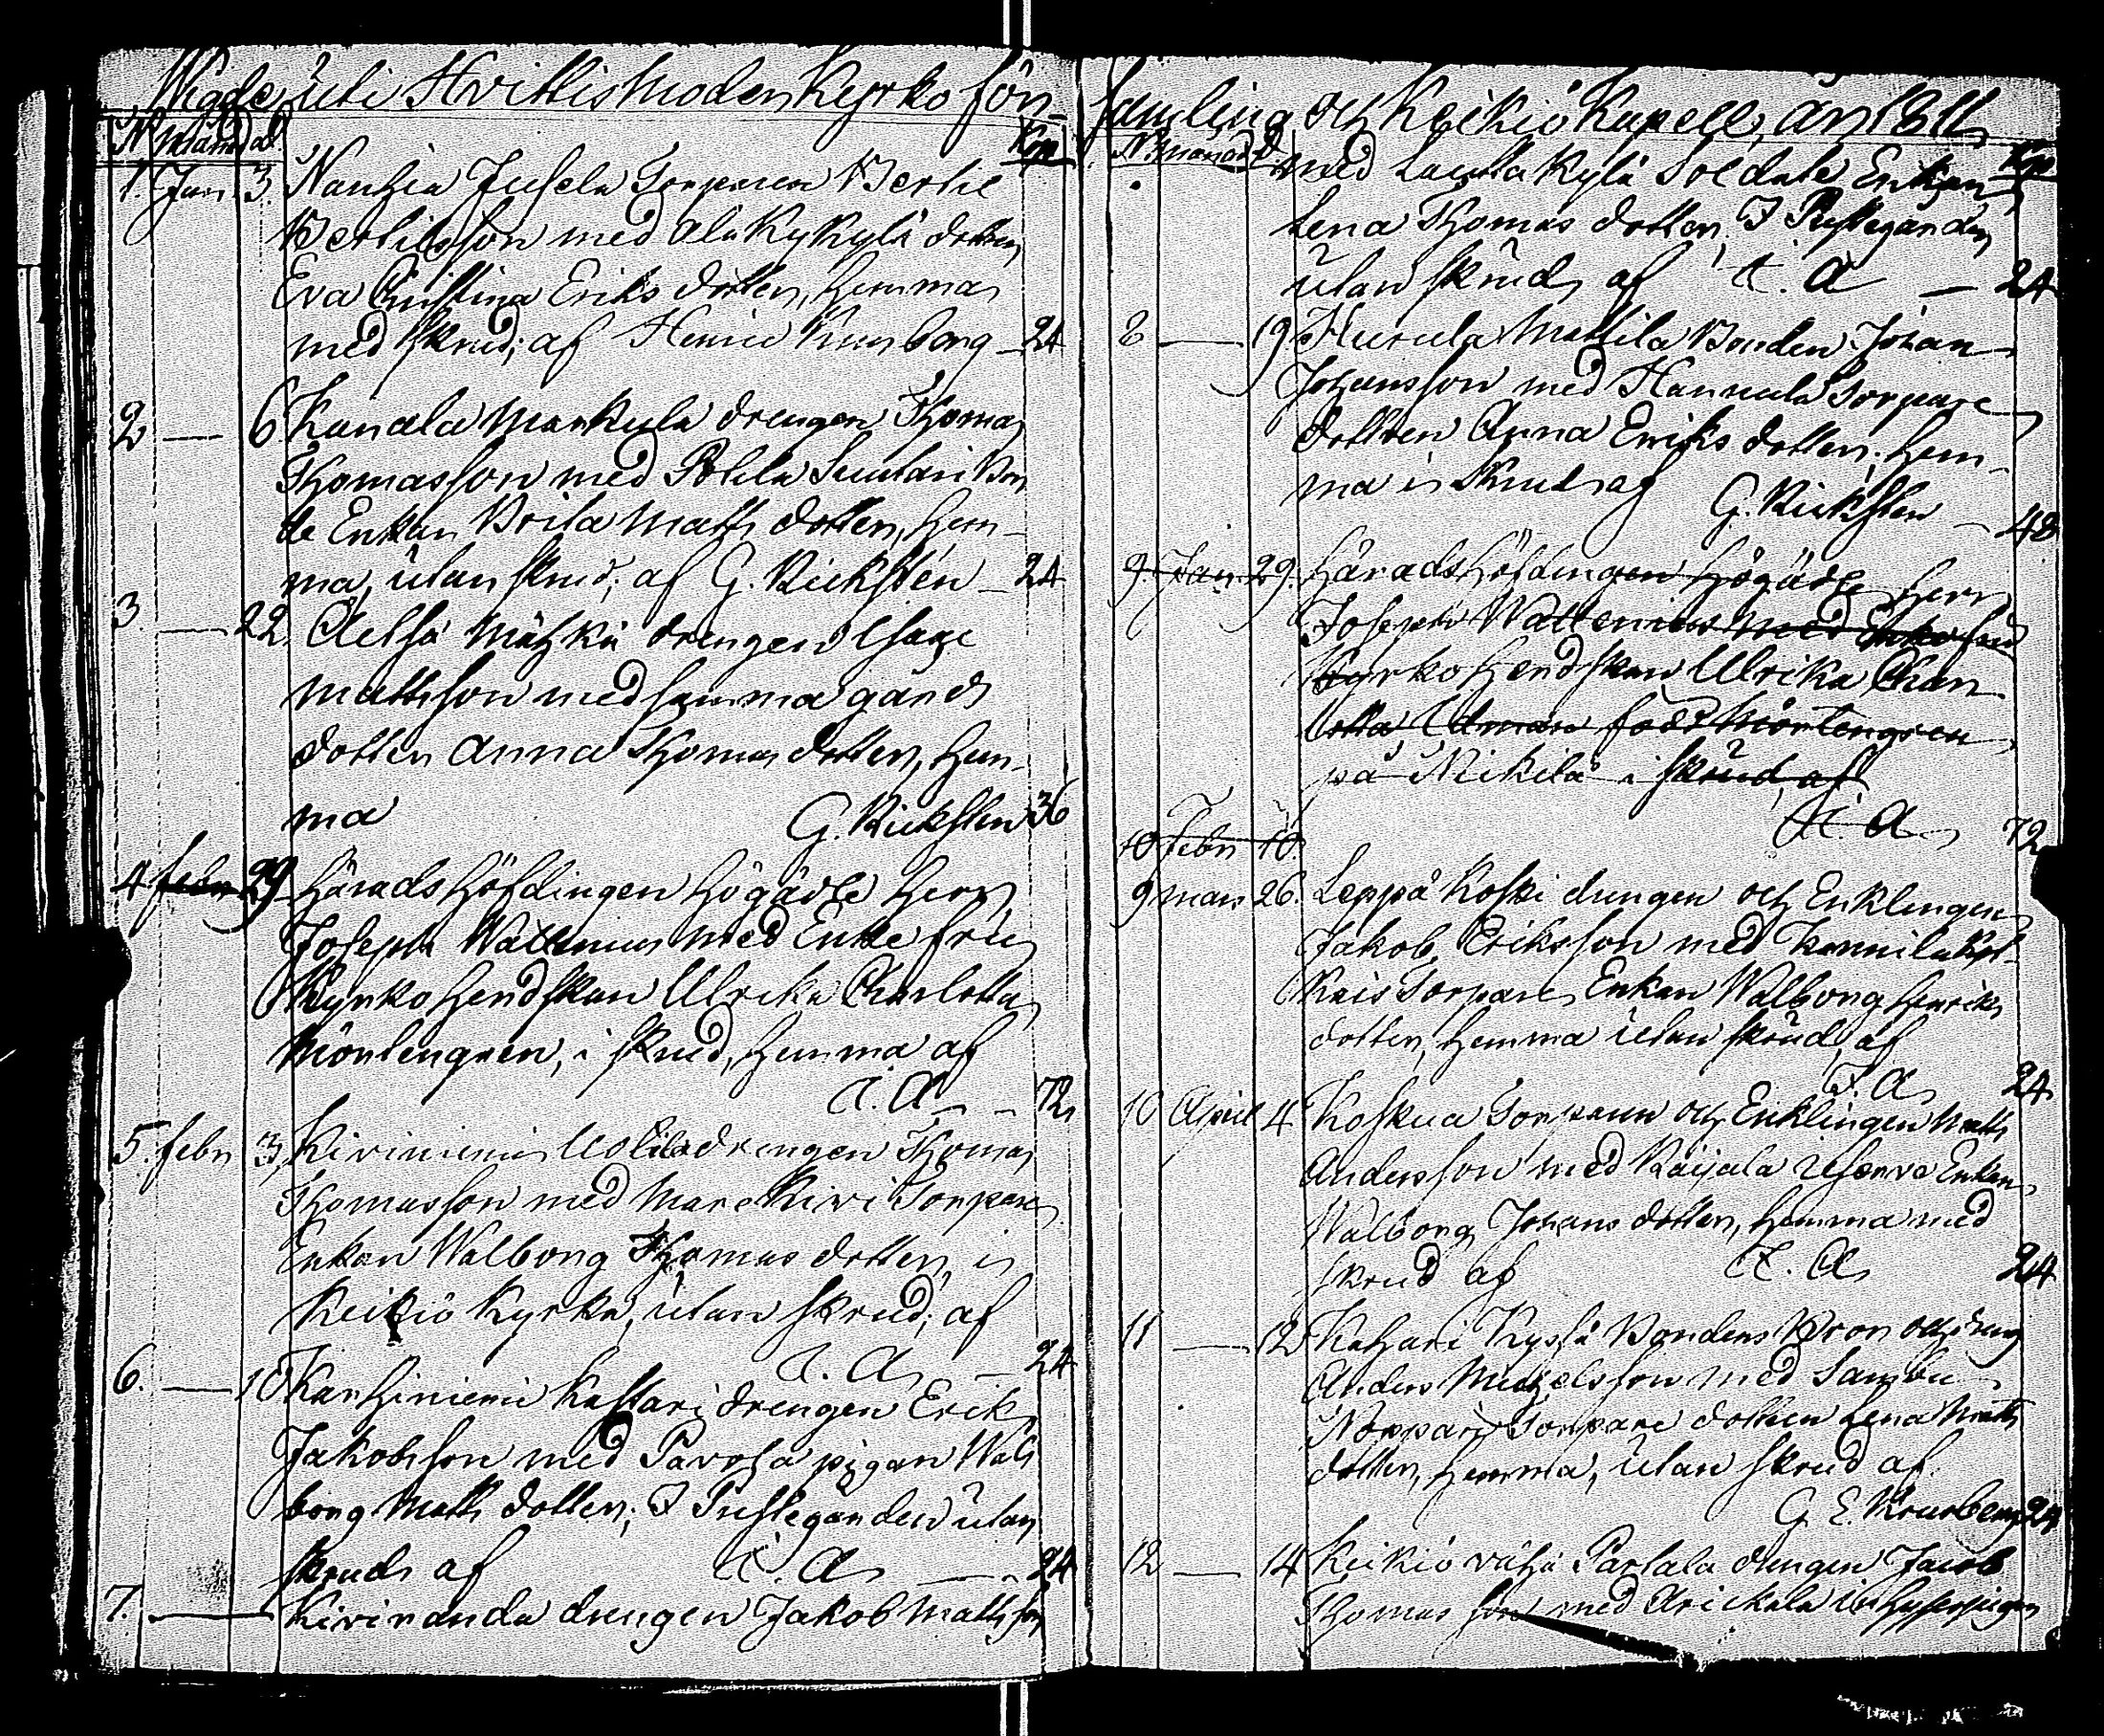 Wigde uti Hvittis Moder Kyrko för-
N Månad d. Kop
1. Jan. 3. Nanhia Jusela Torparen Bertil
Bertilsson med Ala Kykylä dottren
Eva Christina Eriks dotter, hemma
med skrud; af Henric Krusberg - 24
2 — 6 Kanala Markula drengen Thomas
Thomasson med Pohla Suutari Bon
de Enkan Brita Matts dotter, hem-
ma, utan skrud; af G. Rickstén - 24
3. — 22 Aelsä drengen Isaac
Mattsson med samma gårds
dotter Anna Thomas dotter, hem-
ma G. Ricksten 36
4 febr 29 Häradshöfdingen Högädle Herr
Joseph Wallenius med Enke fru
Kyrkoherdskan Ulrika Charlotta
Mörtengren, i skrud, hemma af
A. A - - 72
5. febr 3, Kiviniemi Uotila drengen Thomas
Thomasson med Mare Kivi Torpare
Enkan Walborg Thomas dotter, i
Keikiö Kyrka, utan skrud; af
A. A. - 24
6. — 10 Karhiniemi Kastari drengen Erik
Jakobsson med Pavola pigan Wal
borg Matts dotter; I Prestegården utan
skrud af A. A - 24
7. — Kiviranda drengen Jakob Mattsson
samling och Keikiö Kapell, år 1811
N Månad D Kop
med Lautta Kylä Soldate Enkan
Lena Thomas dotter. I Prestegården
utan skrud, af A. A — 24
8 — 19 Hurula Mattila Bonden Johan
Johansson med Hannula Torpare
dottren Anna Eriks dotter, hem-
ma i skrud af
G. Ricksten - 48
9. Jan. 29. Häradshöfdingen Högädle Herr
Joseph Wallenius med Enke fru
Kyrkoherdskan Ulrika Char
lotta Uman född Mörtengren
på Nikilä i skrud, af
A. A 72
10 Febr 10.
9 mars 26. Leppä Koski drengen och Enklingen
Jakob Eriksson med
Torpare Enkan Walborg Henriks
dotter, hemma utan skrud, af
A. A 24
10 April 4 Koskua Torparen och Enklingen Matts
Andersson med Räijala Enkan
Walborg Johans dotter, hemma med
skrud af A. A 24
11 — 12 Kahari Kyssä Bondens Bror och dreng
Anders Michelsson med Sambu
Norpari Torpare dottren Lena Matts
dotter, hemma, utan skrud af
G. E. Krusberg 24
12 — 14 Keikiö vähä Partala drengen Jacob
Thomas son med